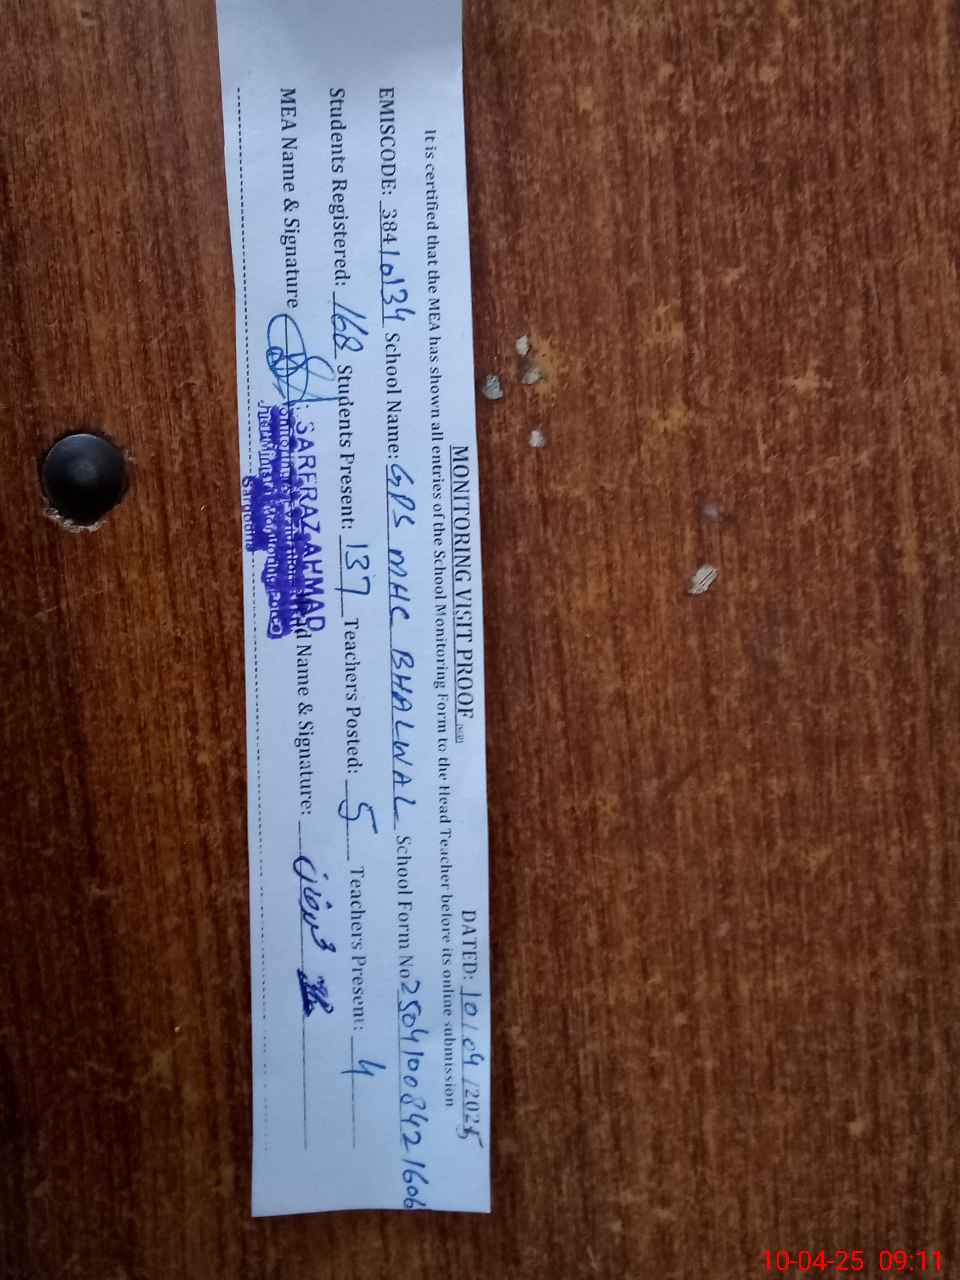 MONITORING VISIT PROOF
DATED: 10/04/2025
It is certified that the MEA has shown all entries of the School Monitoring Form to the Head Teacher before its online submission
EMISCODE: 38410134 School Name: GPS MHC BHALWAL School Form No 25041008421606
Students Registered: 168 Students Present: 137 Teachers Posted: 5 Teachers Present: 4
MEA Name & Signature Name & Signature:
SARFRAZ AHMAD
Sargodha
10-04-25 09:11